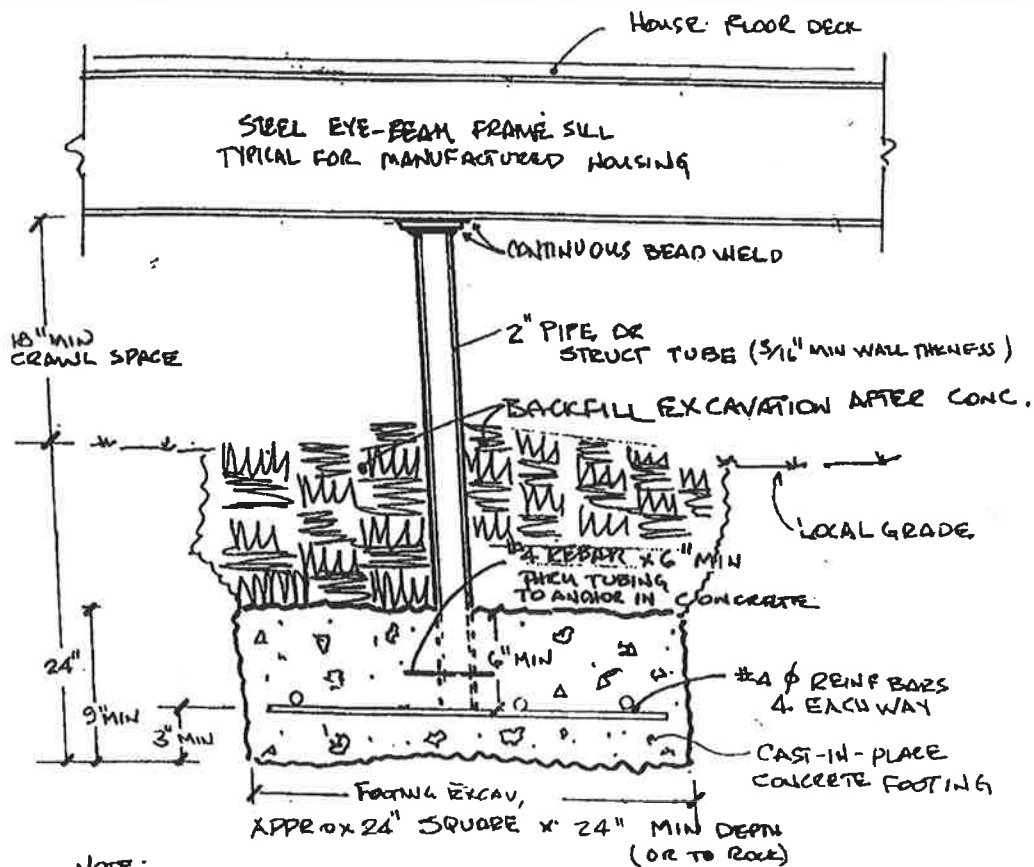 HOUSE FLOOR DECK
STEEL EYE-BEAM FRAME SILL
TYPICAL FOR MANUFACTURED HOUSING
CONTINUOUS BEAD WELD
18" MIN
CRAWL SPACE
2" PIPE OR
STRUCT TUBE (3/16" MIN WALL THKNESS)
BACKFILL EXCAVATION AFTER CONC.
LOCAL GRADE
#4 REBAR x 6" MIN
THRU TUBING
TO ANCHOR IN CONCRETE
24"
9" MIN
3" MIN
6" MIN
#4 ϕ REINF BARS
4 EACH WAY
CAST-IN-PLACE
CONCRETE FOOTING
FOOTING EXCAV,
APPROX 24" SQUARE x 24" MIN DEPTH
(OR TO ROCK)
NOTE: